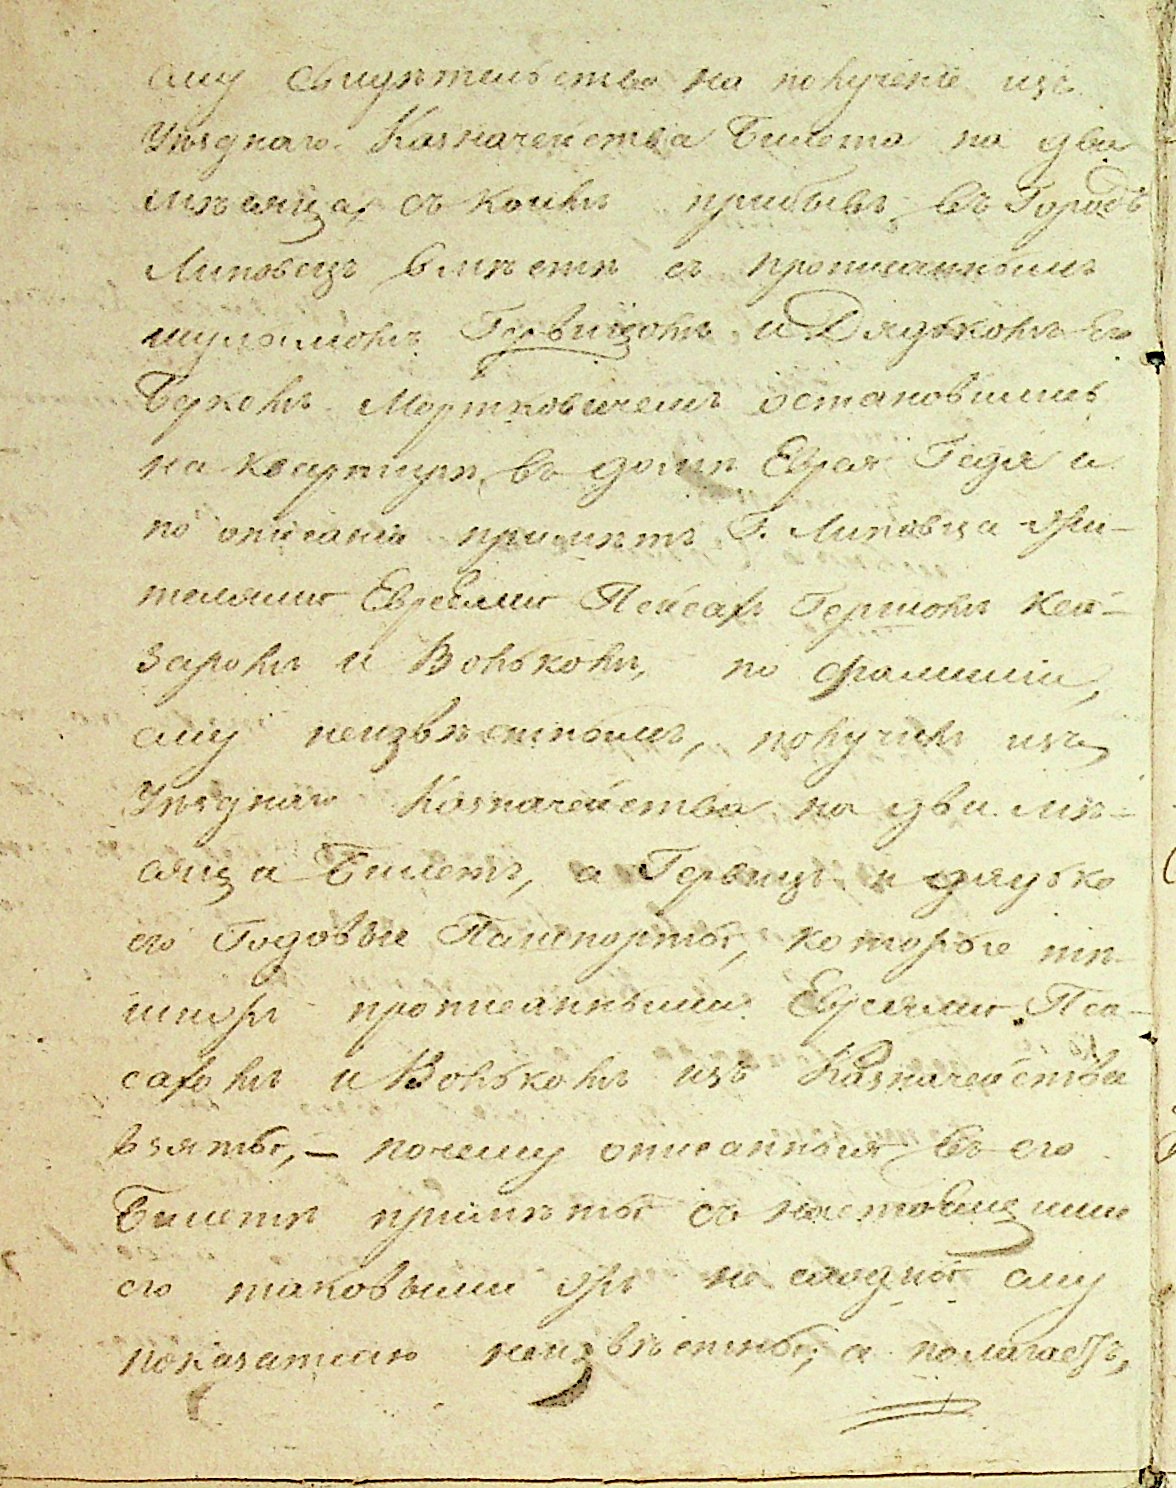 ему свидѣтельство на полученіе изъ
Уѣзднаго Казначейства билета на два
мѣсяца, съ коимъ прибывъ въ Городъ
Липовецъ вмѣстѣ съ прописаннымъ
Шулимомъ Гервицомъ и Дядькомъ его
Беркомъ Мортковичемъ остановились
на квартирѣ въ домѣ Еврея Гедя и
по описаніи примѣтъ Г. Липовца жи-
телями Евреями Пейсахъ Гершомъ Кей-
заромъ и Волькомъ, по фамиліи,
ему неизвѣстнымъ, получилъ изъ
Уѣзднаго Казначейства на два мѣ-
сяца Билетъ, а Гервицъ и дядько
его Годовые Паспорты, которые тѣ-
ми жъ прописанными Евреями Пеи-
сахомъ и Волькомъ изъ Казначейства
взяты, — почему описанныя въ его
Билетѣ примѣты съ настоящими
его таковыми жъ не сходны ему
показателю неизвѣстны, а полагаетъ,